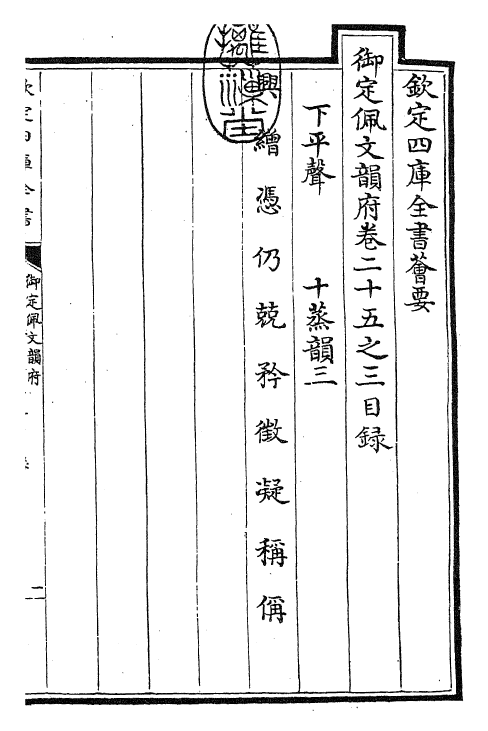 欽定四庫全書薈要
御定佩文韻府卷二十五之三目録
下平聲　十蒸韻三
興　繒　憑　仍　兢　矜　徵　凝　稱　偁
欽定四庫全書
御定佩文韻府
二